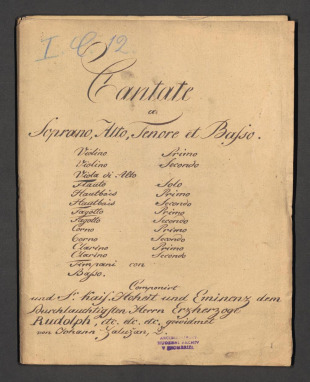 I. C. 12.
Cantate
a
Soprano, Alto, Tenore et Basso.
Violino Primo
Violino Secondo
Viola di Alto
Flauto Solo
Hautbois Primo
Hautbois Secondo
Fagotto Primo
Fagotto Secondo
Corno Primo
Corno Secondo
Clarino Primo
Clarino Secondo
Timpani con
Basso.
Componirt
und Sr. Kais. Hoheit und Eminenz dem
Durchlauchtigsten Herrn Erzherzoge
Rudolph, etc. etc. etc. gewidmet
von Johann Zaluzan,
V KROMĚŘÍŽI